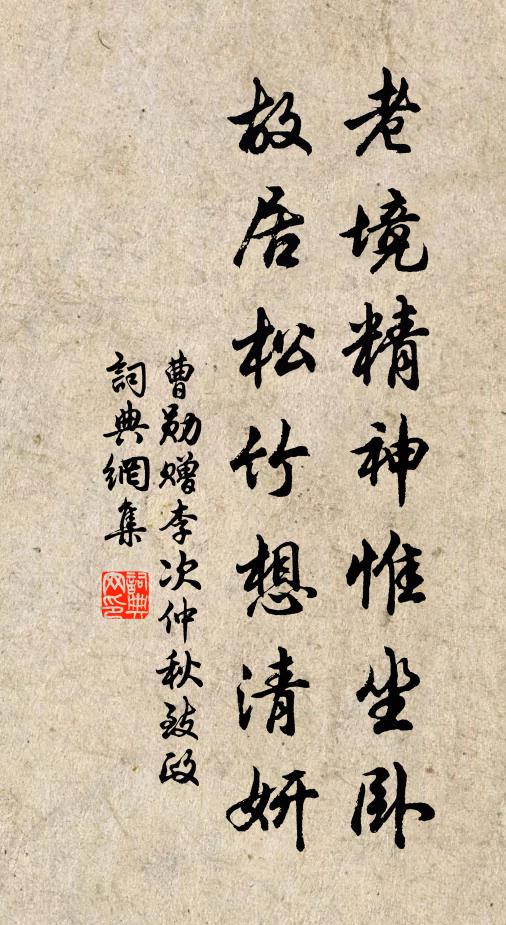 老境精神惟坐卧
故居松竹想清妍
曹勋赠李次仲秋致政
詞典網集
詞典網印